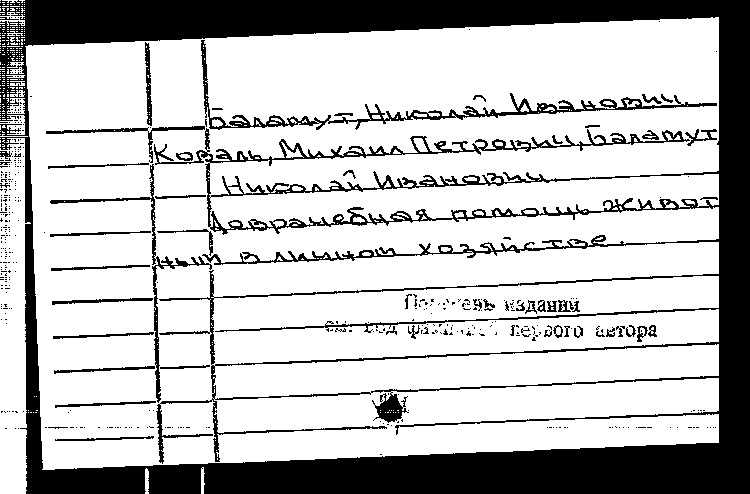 Баламут, Николай Иванович.
Коваль, Михаил Петрович, Баламут,
Николай Иванович.
Доврачебная помощь живот
ным в личном хозяйстве.
Перечень изданий
см. под фамилией первого автора